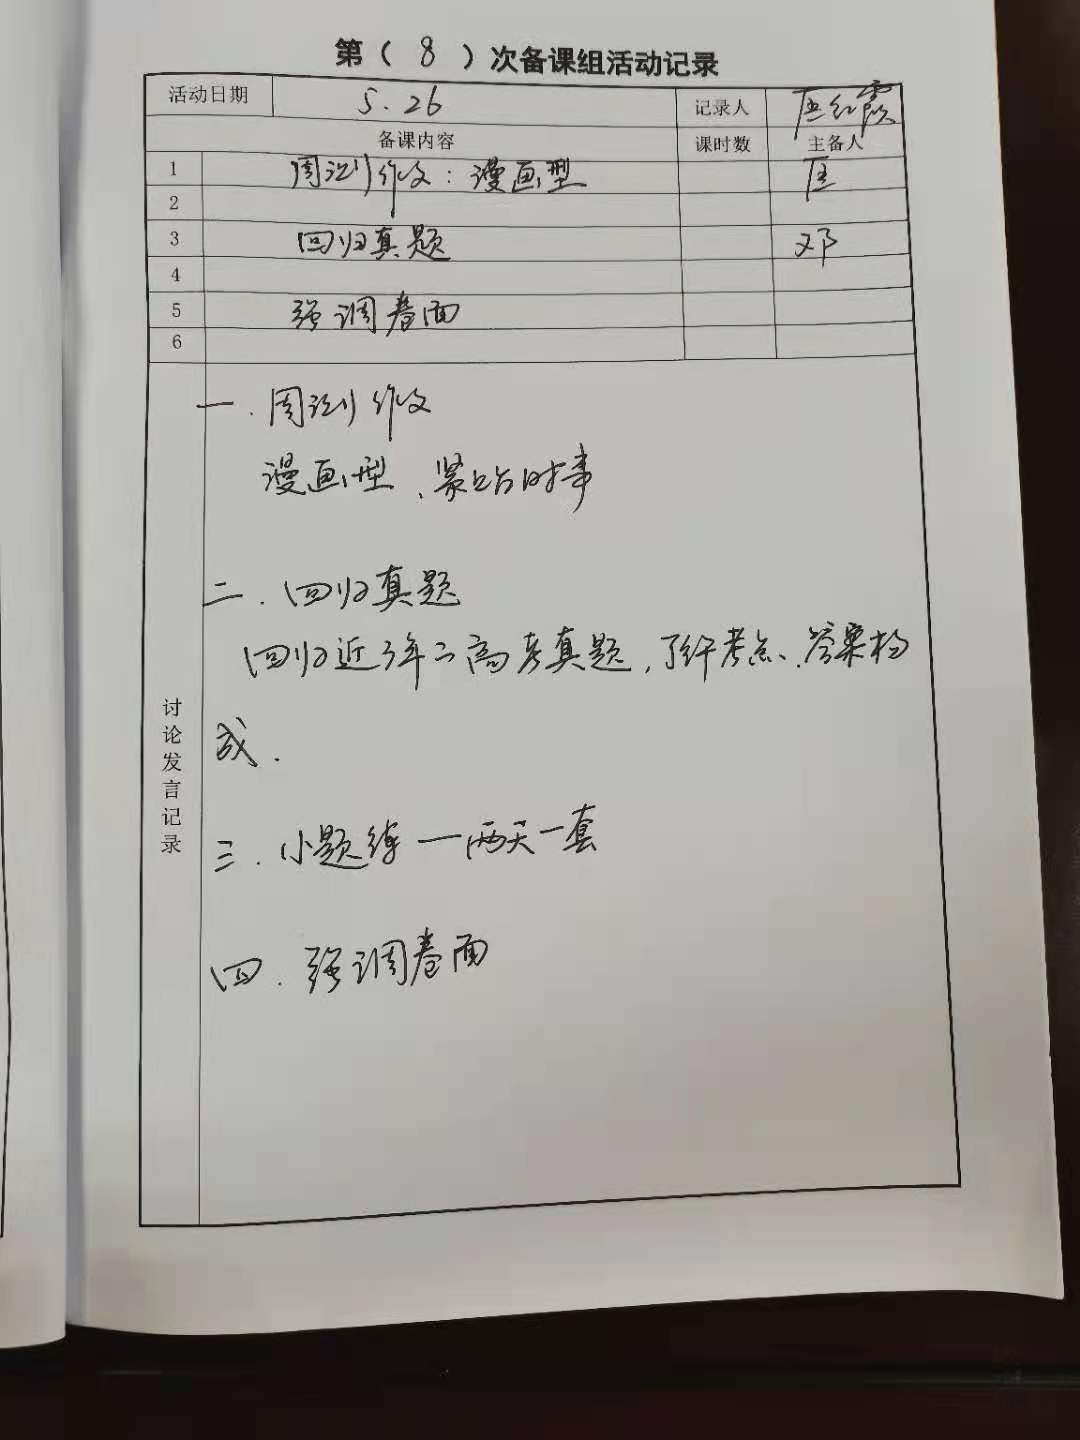 第（ 8 ）次备课组活动记录
活动日期 5.26 记录人 匡红霞
备课内容 课时数 主备人
1 周测作文：漫画型 匡
2
3 回归真题 邓
4
5 强调卷面
6
讨论发言记录
一．周测作文
漫画型、紧贴时事
二．回归真题
回归近3年二高考真题，了解考点、答案构
成．
三．小题练一两天一套
四．强调卷面